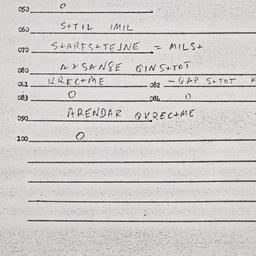 050 0
060 S+TIL IMIL
070 S+ARFS+TEJNE = MILS+
080 AXSANGE QINS+TOT
081 KREC+ME 082 -GAP S+TOT K
083 0 084 0
090 ARENDAR QKREC+ME
100 0